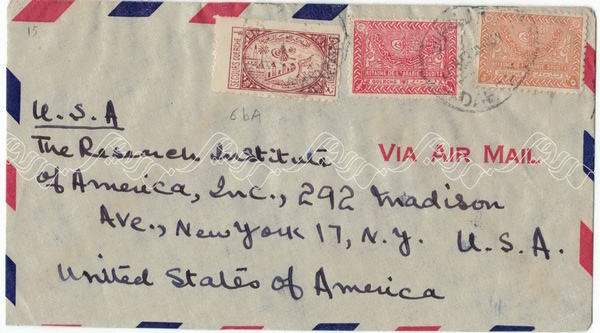 15
ROYAUME DE L'ARABIE
6bA
U.S.A
The Research Institute
VIA AIR MAIL
of America, Inc., 292 Madison
Ave., New York 17, N.Y. U.S.A.
United States of America